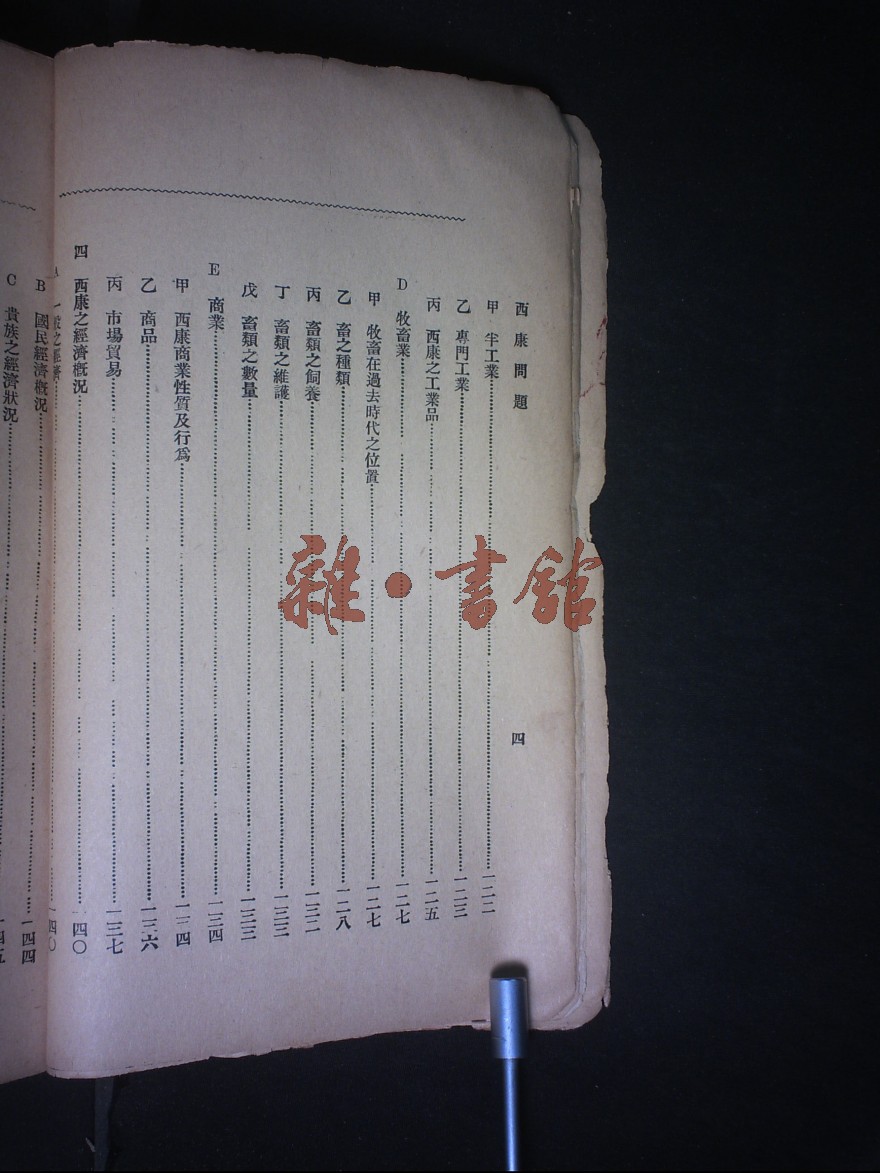 西康問題
四
甲 半工業 一二二
乙 專門工業 一二三
丙 西康之工業品 一二五
D 牧畜業 一二七
甲 牧畜在過去時代之位置 一二七
乙 畜之種類 一二八
丙 畜類之飼養 一三二
丁 畜類之維護 一三三
戊 畜類之數量 一三三
E 商業 一三四
甲 西康商業性質及行為 一三四
乙 商品 一三六
丙 市場貿易 一三七
四 西康之經濟概況 一四〇
A 一般之經濟 一四〇
B 國民經濟概況 一四四
C 貴族之經濟狀況 一四五
雜·書館